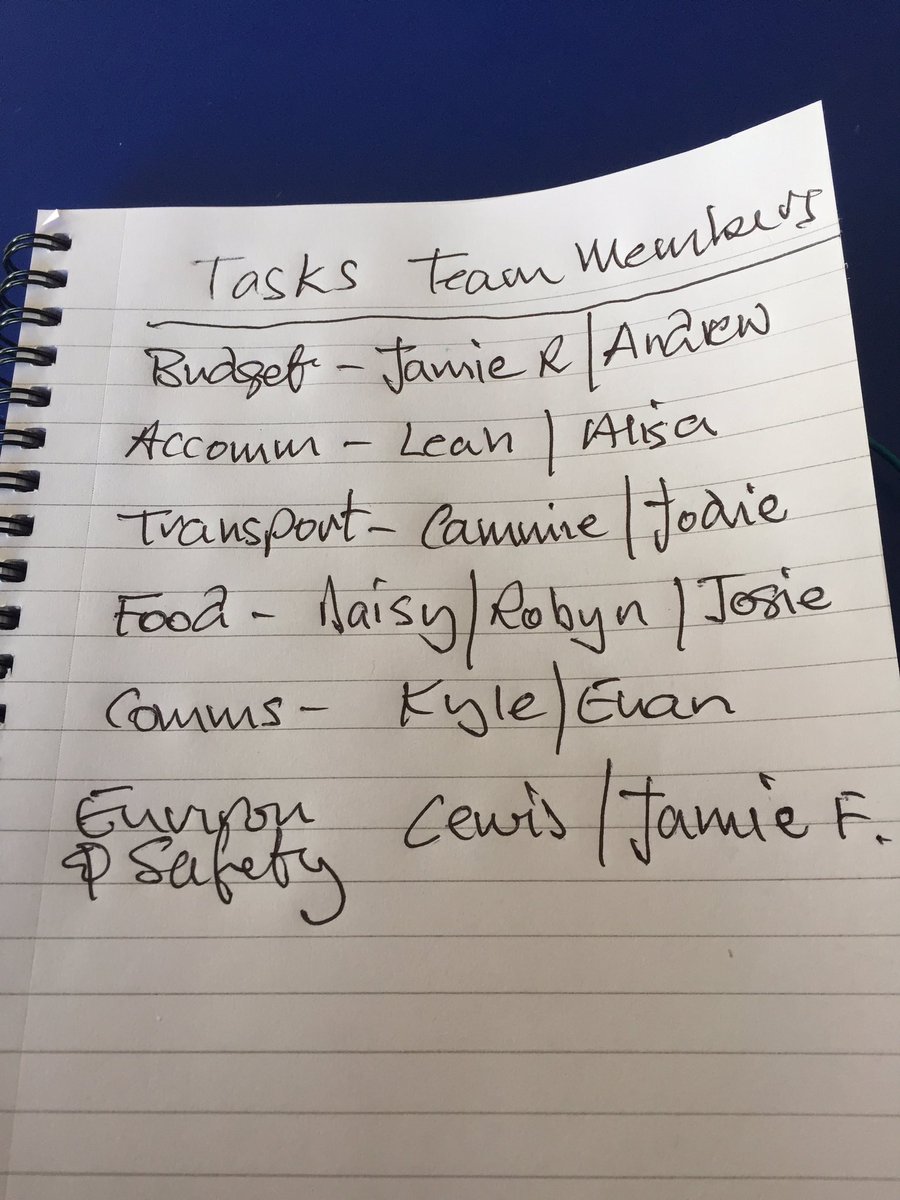 Tasks Team Members
Budget - Jamie R | Andrew
Accomm - Leah | Alisa
Transport - Cammie | Jodie
Food - Daisy | Robyn | Josie
Comms - Kyle | Euan
Environ Lewis | Jamie F.
& Safety